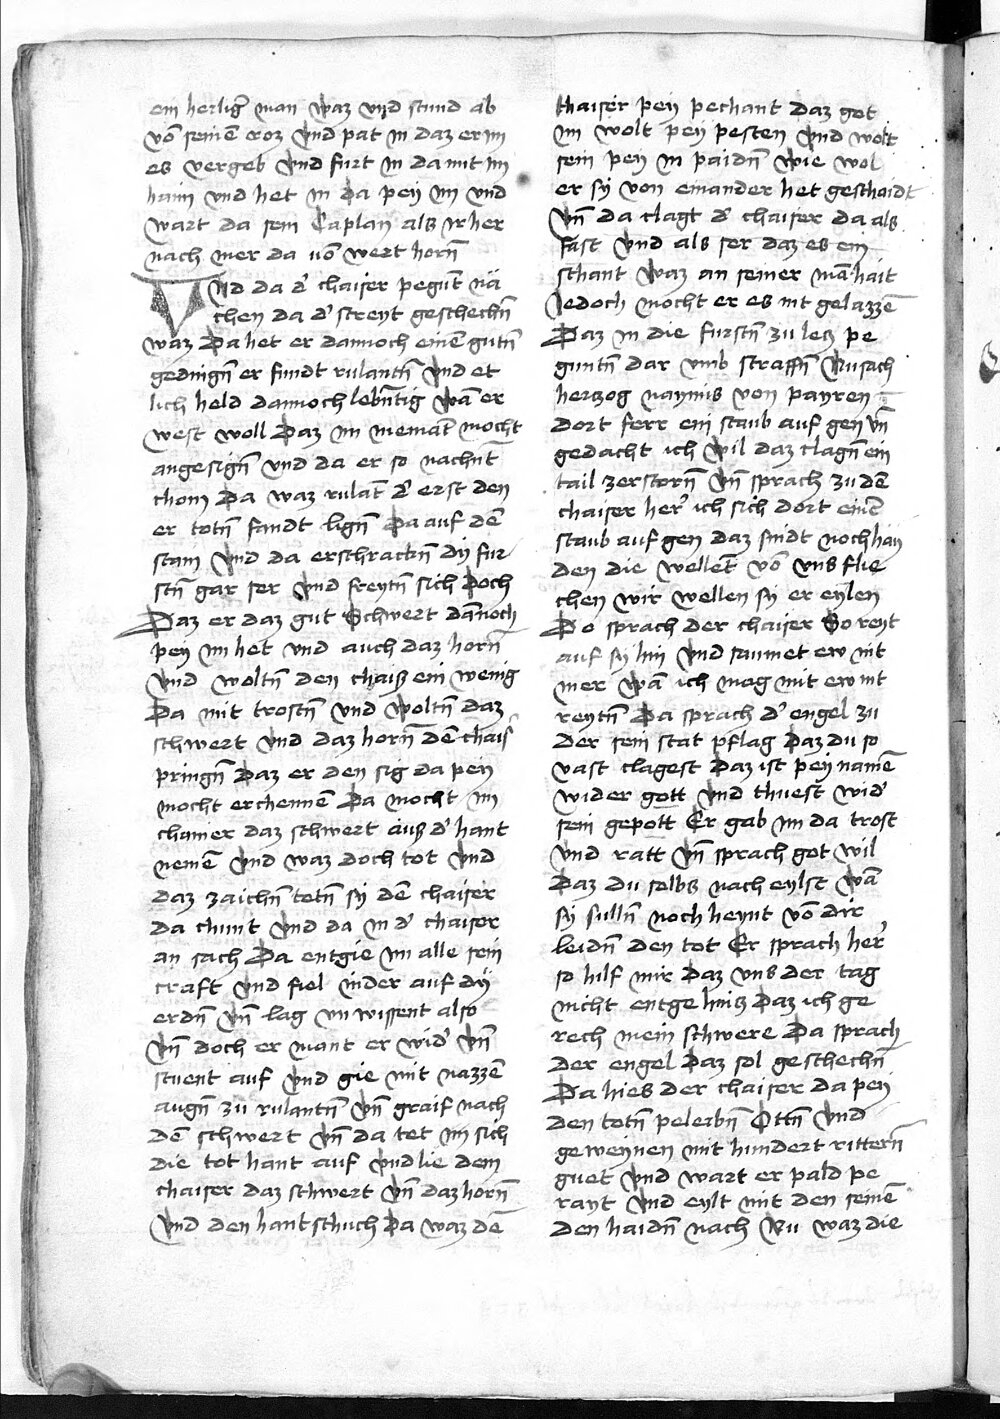 ein herlig' man waz vnd stund ab
vō seinē roz vnd pat in daz er im
es vergeb vnd furt in da mit im
haim vnd het in da pey im vnd
wart da sein Caplan als ir her
nach mer da vō wert horn̄
VNd da d' chaiser pegūt nä
chen da d' streyt geschechn̄
waz Da het er dannoch einē gutn̄
gedingn̄ er fundt rulantn̄ vnd et
lich held dannoch lebn̄tig wā er
west woll Daz im niemāt mocht
angesign̄ vnd da er so nachnt
chom Da waz rulāt d' erst den
er totn̄ fandt lign̄ Da auf dē
stam vnd da erschrackn̄ dy fur
stn̄ gar ser vnd freytn̄ sich Doch
Daz er daz gut Schwert dānoch
pey im het vnd auch daz horn̄
vnd woltn̄ den chaiß ein wenig
Da mit trostn̄ vnd woltn̄ daz
schwert vnd daz horn̄ dē chais'
pringn̄ Daz er den sig da pey
mocht erchennē Da mocht im
chainer daz schwert auß d' hant
nemē vnd waz doch tot vnd
daz zaichn̄ tetn̄ sy dē chaiser
da chunt vnd da in d' chaiser
an sach Da entgie im alle sein
craft vnd fiel nider auf dÿ
erdn̄ vn̄ lag vnwissent also
vn̄ doch er mant er wid' vn̄
stuent auf vnd gie mit nazzē
augn̄ zu rulantn̄ vn̄ graif nach
dē schwert vn̄ da tet im sich
die tot hant auf vnd lie dem
chaiser daz schwert vn̄ daz horn̄
vnd den hantschuch Da waz dē
chaiser pey pechant daz got
im wolt pey pesten vnd wolt
sein pey in paidn̄ wie wol
er sy von einander het geschaidt
vn̄ da clagt d' chaiser da als
fast vnd als ser daz es ein
schant waz an seiner māhait
Jedoch mocht er es nit gelazzē
Daz in die furstn̄ zu lecz pe
guntn̄ dar vmb straffn̄ Nu sach
herczog naymis von payren
dort ferr ein staub auf gen vn̄
gedacht ich wil daz clagn̄ ein
tail zerstorn̄ vn̄ sprach zu dē
chaiser her' ich sich dort einē
staub auf gen daz sindt noch hay
den die wellēt vō vns flie
chen wir wellen sy er eylen
Do sprach der chaiser So reyt
auf sy hin vnd saumet ew nit
mer wā ich mag mit ew nit
reytn̄ Da sprach d' engel zu
der sein stat pflag Daz du so
vast clagest Daz ist pey namē
wider gott vnd thuest wid'
sein gepott Er gab im da trost
vnd ratt vn̄ sprach got wil
Daz du selbs nach eylst wā
sy sulln̄ noch heynt vō dir
leidn̄ den tot Er sprach her'
so hilf mir Daz vns der tag
nicht entge hincz Daz ich ge
rech mein schwere Da sprach
der engel Daz sol geschechn̄
Da hies der chaiser da pey
den totn̄ pelerbn̄ Ottn̄ vnd
geweynen mit hundert rittern̄
guet vnd wart er pald pe
rayt vnd eylt mit den seinē
den haidn̄ nach Nu waz die